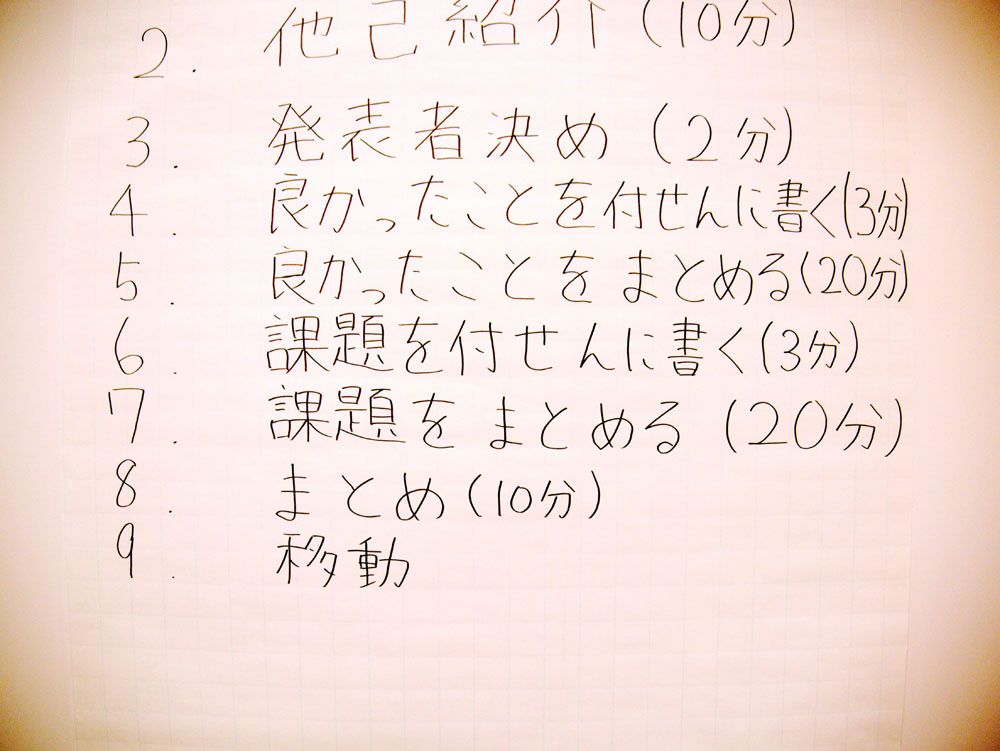 2. 他己紹介(10分)
3. 発表者決め(2分)
4. 良かったことを付せんに書く(3分)
5. 良かったことをまとめる(20分)
6. 課題を付せんに書く(3分)
7. 課題をまとめる(20分)
8. まとめ(10分)
9. 移動